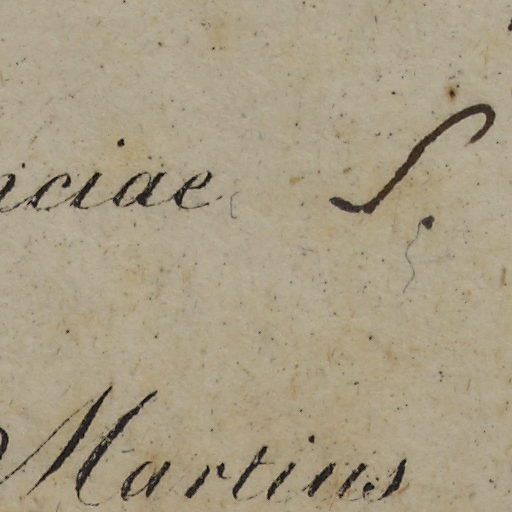 iciae S.
Martius